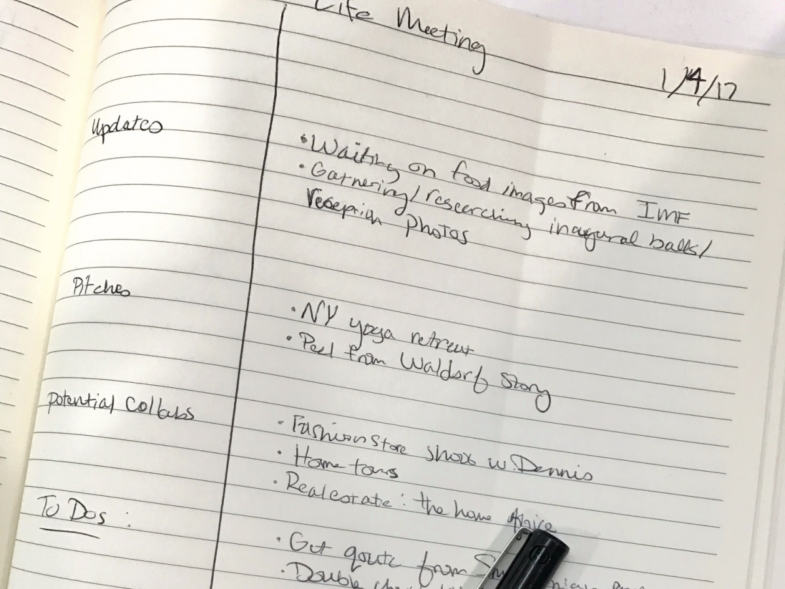 Life Meeting
1/4/17
Updates
• Waiting on food images from IMF
• Gathering/researching inagural balls/
reception photos
Pitches
• NY yoga retreat
• Peel from Waldorf Story
Potential Collabs
• Fashion store shoots w. Dennis
• Home tours
• Real estate: the home office
To Dos:
• Get qoute from
• Double